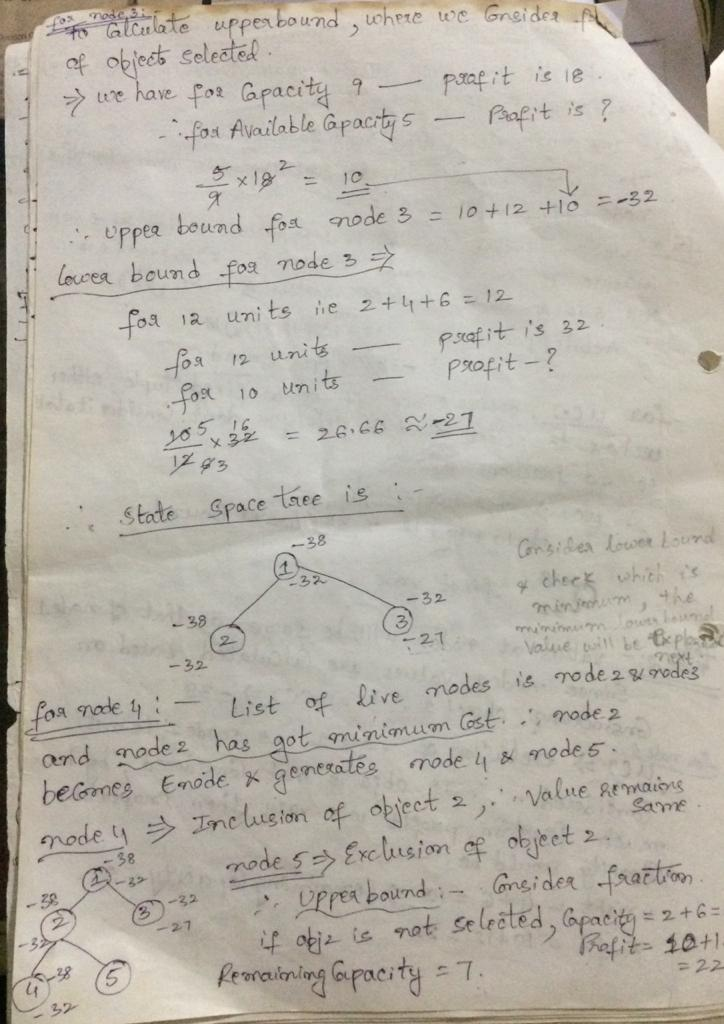 for node 3:
to Calculate upperbound, where we Consider
of objects selected.
⇒ we have for Capacity 9 — profit is 18.
∴ for Available Capacity 5 — Profit is ?
5/9 × 18 2 = 10
∴ upper bound for node 3 = 10 + 12 + 10 = -32
Lower bound for node 3 ⇒
for 12 units i.e 2+4+6 = 12
for 12 units — profit is 32.
for 10 units — profit - ?
10 5 / 12 6 3 × 32 16 = 26.66 ≈ -27
∴ State Space tree is :-
-38
1
-32
-38
2
-32
-32
3
-27
Consider lower bound
& check which is
minimum, the
minimum lower bound
Value will be Explored
next
for node 4 :- List of live nodes is node 2 & node3
and node 2 has got minimum Cost. ∴ node 2
becomes Enode & generates node 4 & node 5.
node 4 ⇒ Inclusion of object 2, ∴ Value remains
Same.
node 5 ⇒ Exclusion of object 2.
∴ Upper bound :- Consider fraction
if obj2 is not selected, Capacity = 2+6=
Profit = 10+1
= 22
Remaining Capacity = 7.
-38
1
-32
-38
2
-32
-32
3
-27
4
-38
-32
5